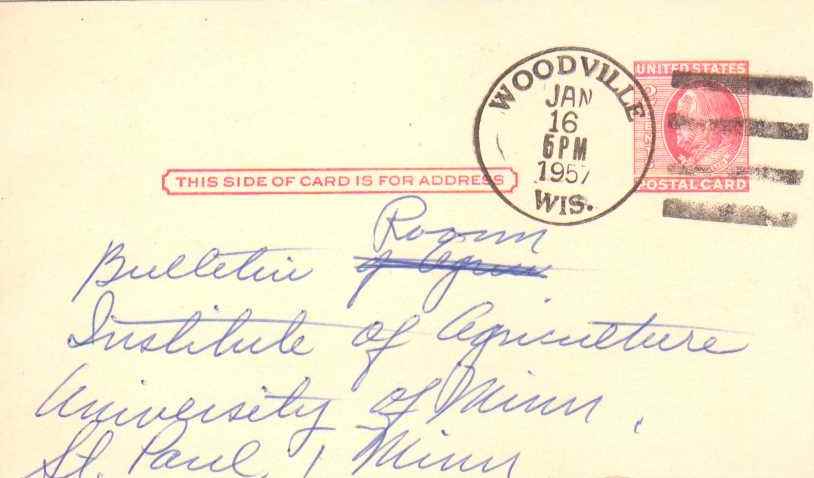 UNITED STATES
POSTAL CARD
WOODVILLE
JAN
16
6PM
1957
WIS.
THIS SIDE OF CARD IS FOR ADDRESS
Room
Bulletin
Institute of Agriculture
University of Minn.
St. Paul, 1 Minn